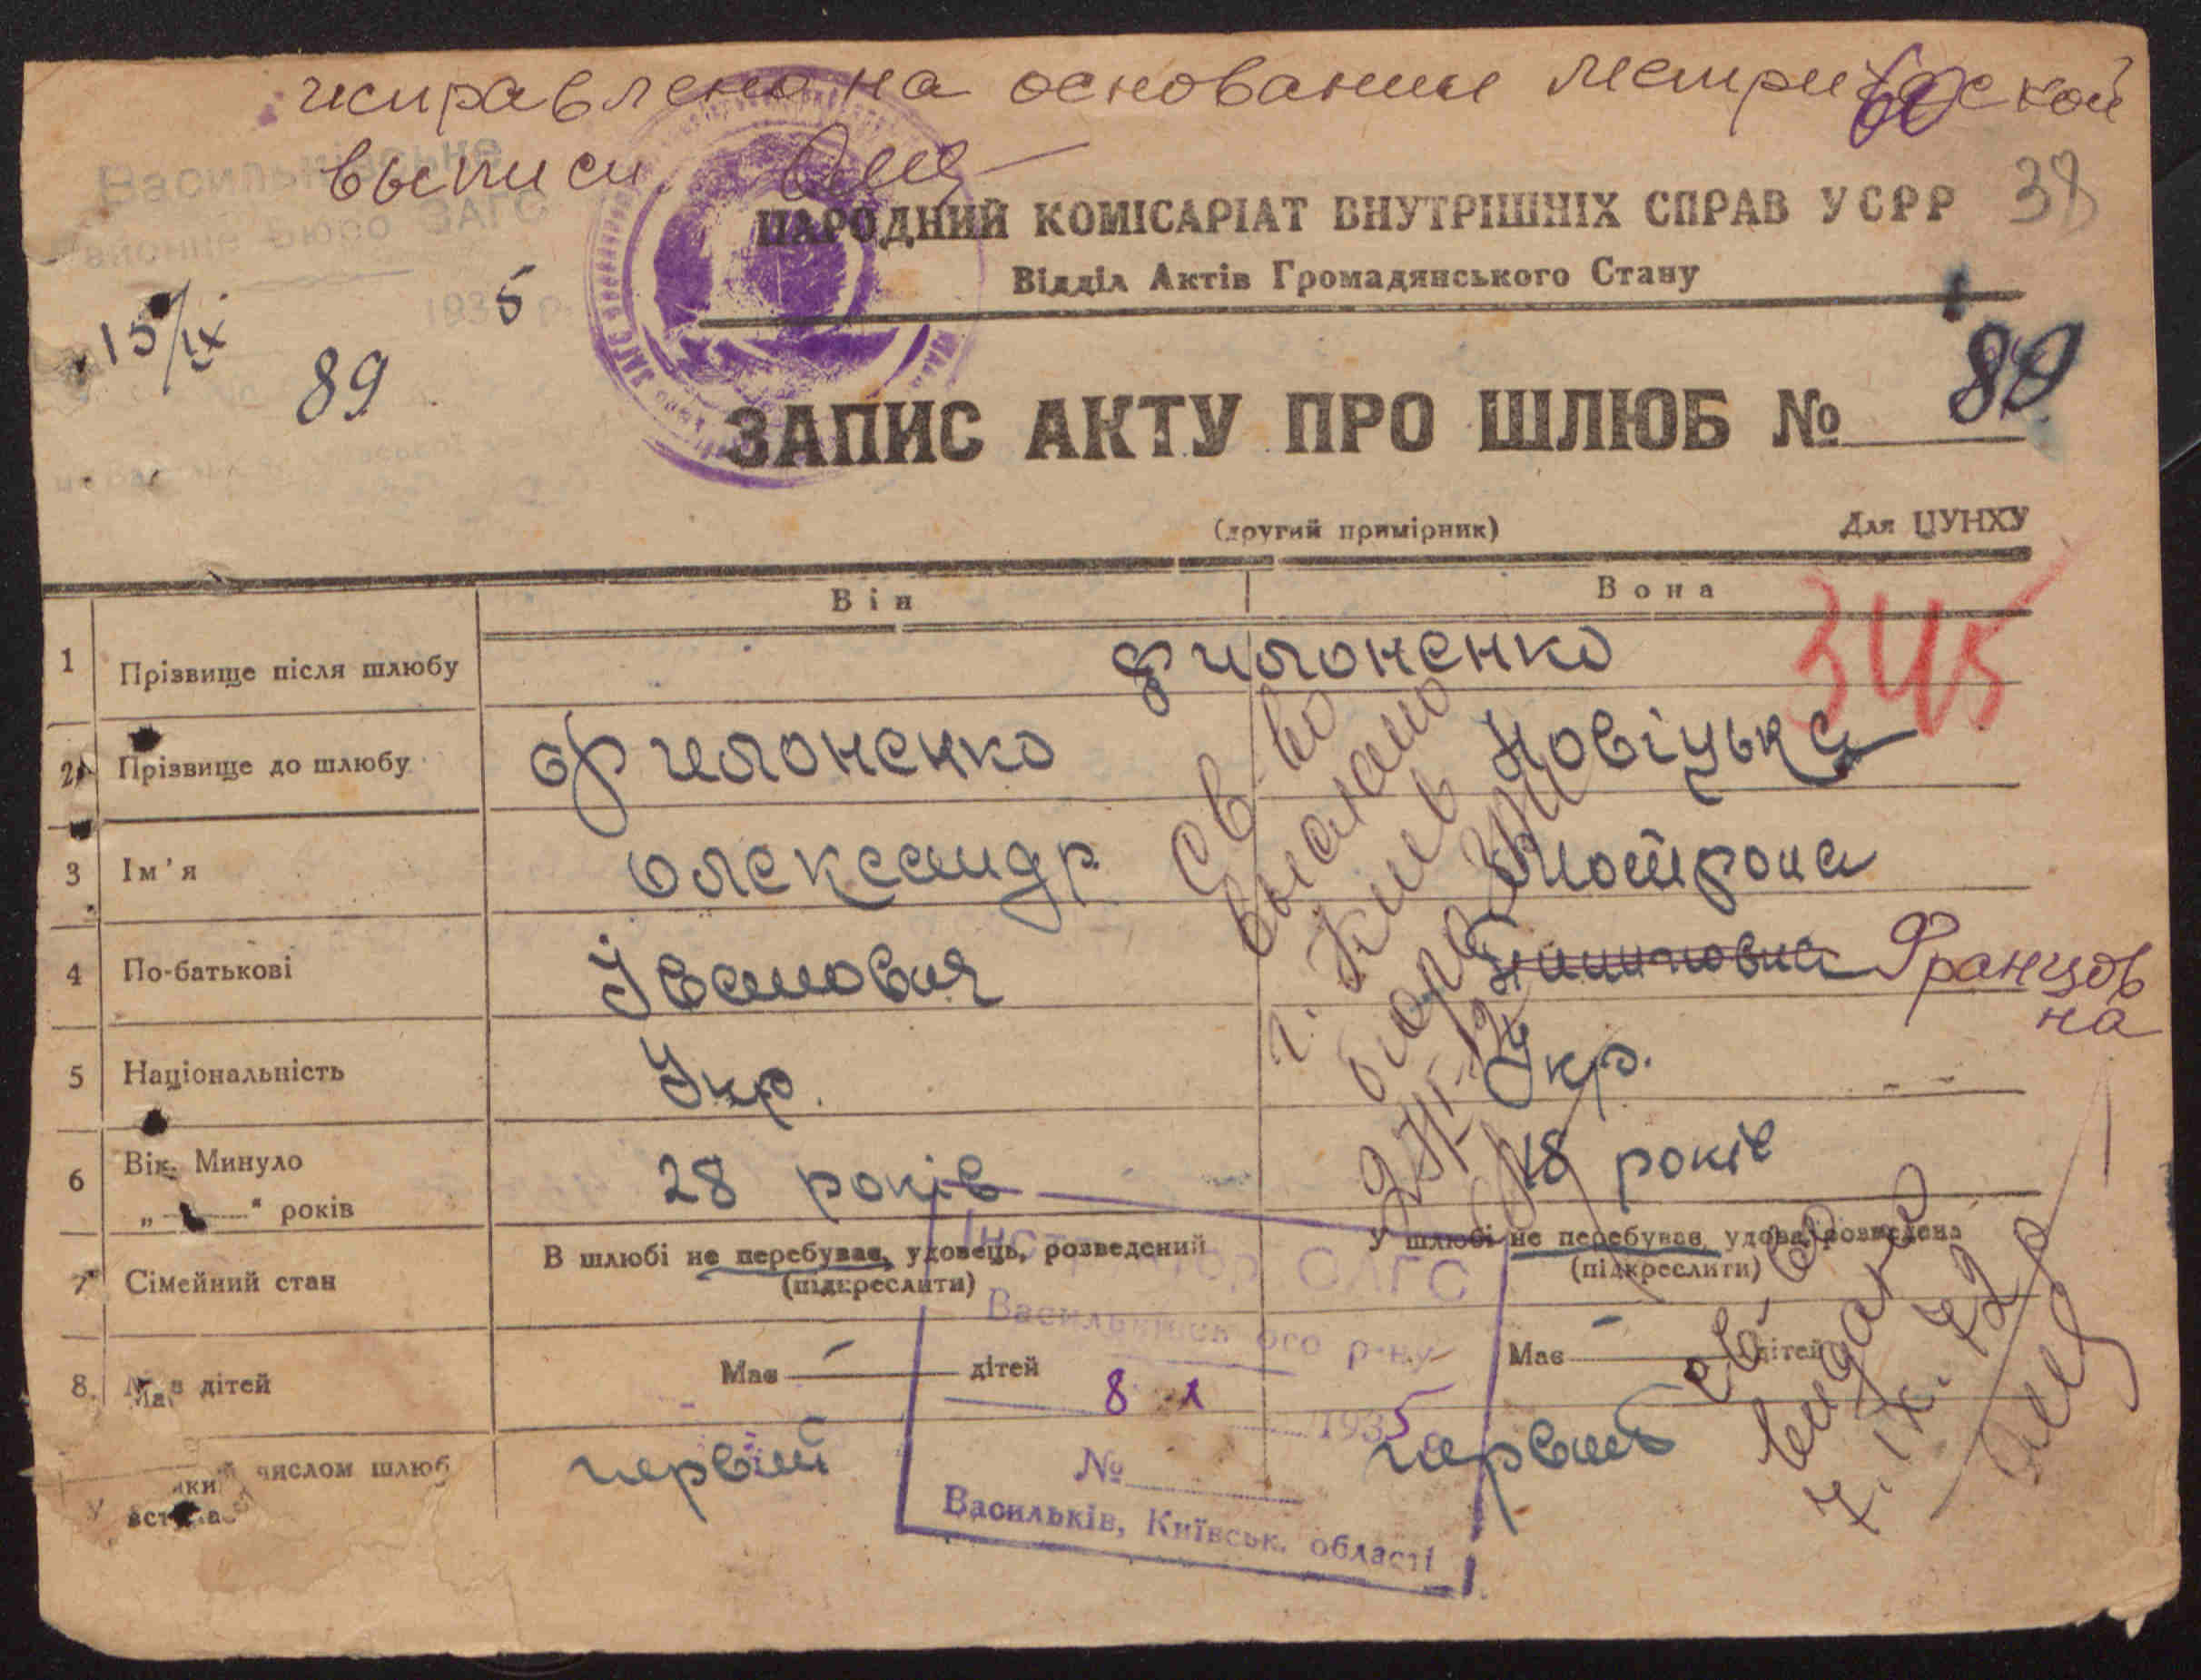 исправлено на основании метрической
выписи
Васильківське
Районне Бюро ЗАГС
15/IX 1935 р.
89
38
НАРОДНИЙ КОМІСАРІАТ ВНУТРІШНІХ СПРАВ УСРР
Відділ Актів Громадянського Стану
ЗАПИС АКТУ ПРО ШЛЮБ № 89
(другий примірник) Для ЦУНХУ
Він Вона
345
1 Прізвище після шлюбу Филоненко
2 Прізвище до шлюбу Филоненко Новіцька
3 Ім'я Олександр Мотрона
4 По-батькові Іванович Францовна
5 Національність Укр. Укр.
6 Вік. Минуло 28 років 18 років
„ “ років
7 Сімейний стан В шлюбі не перебував, удовець, розведений У шлюбі не перебував, удова, розведена
(підкреслити) (підкреслити)
8. Має дітей Має — дітей Має — дітей
числом шлюб первий первий
св-во
выслано
г. Киев
св-во
видано
7.IX.72
Інструктор ОАГС
Васильківськ ого р-ну
8 1 1935
№
Васильків, Київськ. області